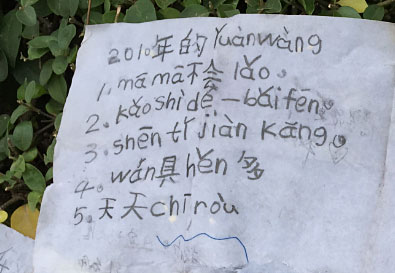 2010年的Yuànwàng
1. mā mā不会lǎo。
2. kǎo shì dé一bǎi fēn。
3. shēn tǐ jiàn kāng。
4. wán具hěn多
5. 天天chī ròu